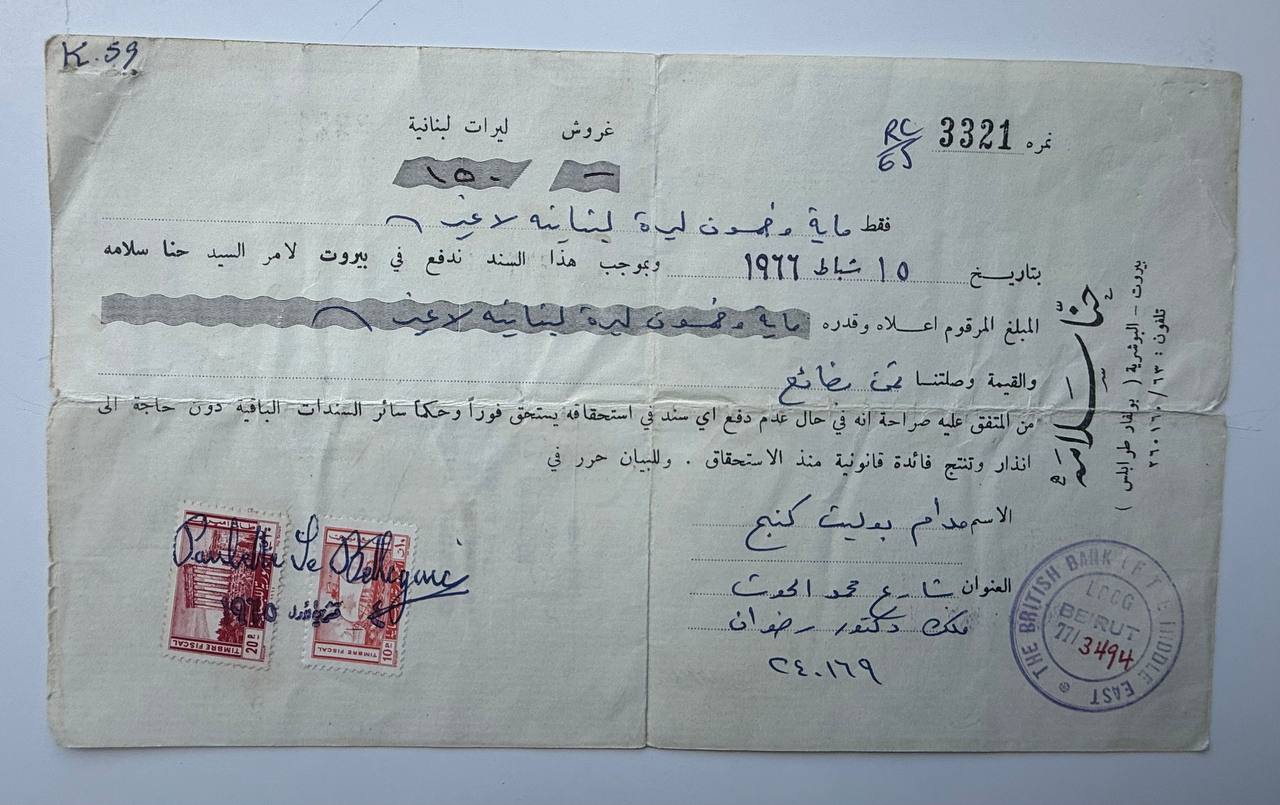 K.59
نمره 3321
RC/65
ليرات لبنانية غروش
١٥٠ —
فقط ماية وخمسون ليرة لبنانيه لاغير
بتاريخ ١٥ شباط ١٩٦٦ وبموجب هذا السند ندفع في بيروت لامر السيد حنا سلامه
المبلغ المرقوم اعلاه وقدره ماية وخمسون ليرة لبنانيه لاغير
والقيمة وصلتنا ثمن بضائع
من المتفق عليه صراحة انه في حال عدم دفع اي سند في استحقاقه يستحق فوراً وحكماً سائر السندات الباقية دون حاجة الى
انذار وتنتج فائدة قانونية منذ الاستحقاق . وللبيان حرر في
الاسم مدام بوليت كنج
العنوان شارع محمد الحوت
ملك دكتور رضوان
٢٤٠١٦٩
حنّا سلامه
بيروت - البوشرية ( بولفار طرابلس )
تلفون : ٦٣ / ٢٦٠١٦٠
THE BRITISH BANK OF THE MIDDLE EAST
BEIRUT
77/3494
Paulette
١٩٦٥
20 P.L. TIMBRE FISCAL
10 P.L. TIMBRE FISCAL